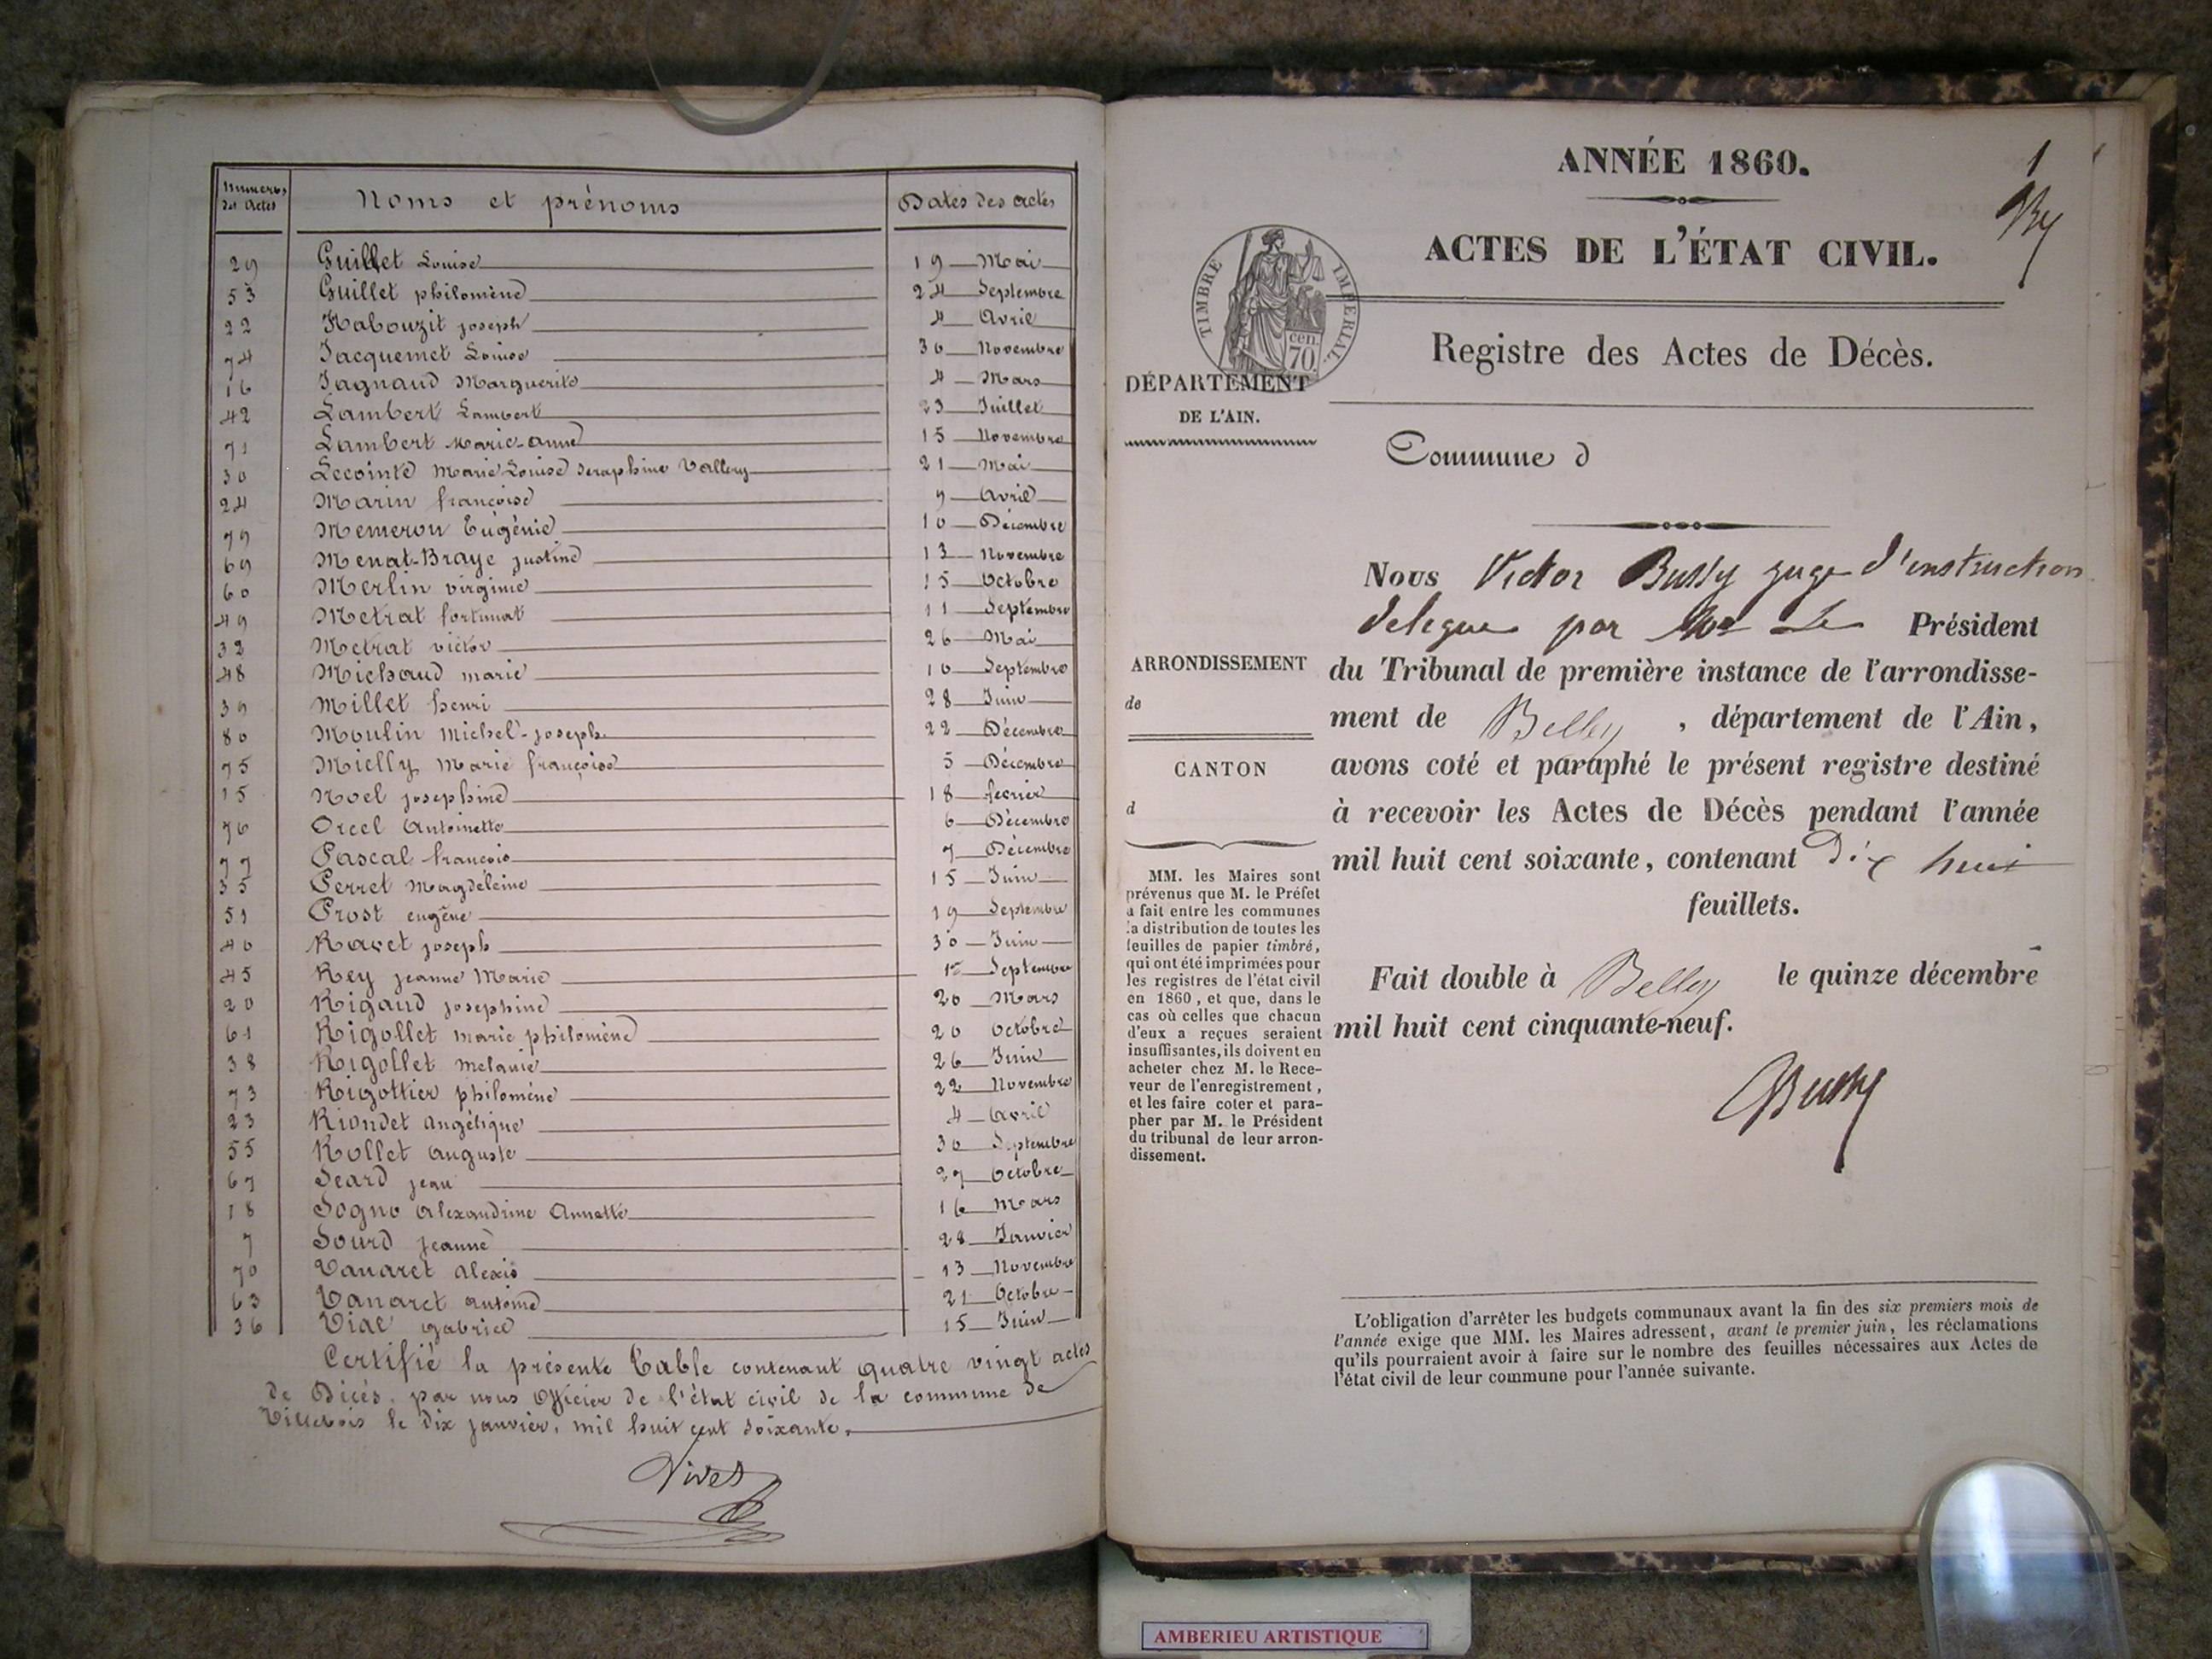 Numeros des Actes Noms et prénoms Dates des actes
29 Guillet Louise 19 Mai
53 Guillet philomène 24 Septembre
22 Habouzit joseph 4 Avril
74 Jacquemet Louise 30 Novembre
16 Jagnaud Marguerite 4 Mars
42 Lambert Lambert 23 Juillet
71 Lambert Marie-anne 15 Novembre
30 Lecointe Marie Louise Seraphine Vallery 21 Mai
24 Marin françoise 9 Avril
79 Memeron Eugénie 10 Décembre
69 Menat-Braye justine 13 Novembre
60 Merlin virginie 15 Octobre
49 Metrat fortunat 11 Septembre
32 Metrat victor 26 Mai
48 Michaud marie 10 Septembre
39 Millet henri 28 Juin
80 Moulin Michel-joseph 22 Décembre
75 Mielly Marie françoise 5 Décembre
15 Noel josephine 18 fevrier
76 Orcel Antoinette 6 Décembre
77 Pascal françois 7 Décembre
35 Perret Magdeleine 15 Juin
51 Prost eugène 19 Septembre
40 Ravet joseph 30 Juin
45 Rey jeanne Marie Septembre
20 Rigaud josephine 20 Mars
61 Rigollet marie philomène 20 Octobre
38 Rigollet Melanie 26 Juin
73 Rigottier philomène 22 Novembre
23 Riondet Angélique 4 Avril
55 Rollet Auguste 30 Septembre
67 Seard jean 27 Octobre
18 Sogno Alexandrine Annette 16 Mars
7 Sourd jeanne 28 Janvier
70 Vanaret Alexis 13 Novembre
63 Vanaret antoine 21 Octobre
36 Vial gabriel 15 Juin
Certifié la présente Table contenant quatre vingt actes
de Décés, par nous Officier de l'état civil de la commune de
Villebois le dix janvier, mil huit cent soixante.
Vives
ANNÉE 1860.
1
By
ACTES DE L'ÉTAT CIVIL.
TIMBRE IMPÉRIAL.
cen. 70.
Registre des Actes de Décès.
DÉPARTEMENT
DE L'AIN.
Commune d
Nous Victor Bussy juge d'instruction
delegue par Mr Le Président
ARRONDISSEMENT
de
CANTON
d
du Tribunal de première instance de l'arrondisse-
ment de Belley, département de l'Ain,
avons coté et paraphé le présent registre destiné
à recevoir les Actes de Décès pendant l'année
mil huit cent soixante, contenant Dix huit
feuillets.
Fait double à Belley le quinze décembre
mil huit cent cinquante-neuf.
Bussy
MM. les Maires sont
prévenus que M. le Préfet
a fait entre les communes
la distribution de toutes les
feuilles de papier timbré,
qui ont été imprimées pour
les registres de l'état civil
en 1860, et que, dans le
cas où celles que chacun
d'eux a reçues seraient
insuffisantes, ils doivent en
acheter chez M. le Rece-
veur de l'enregistrement,
et les faire coter et para-
pher par M. le Président
du tribunal de leur arron-
dissement.
L'obligation d'arrêter les budgets communaux avant la fin des six premiers mois de
l'année exige que MM. les Maires adressent, avant le premier juin, les réclamations
qu'ils pourraient avoir à faire sur le nombre des feuilles nécessaires aux Actes de
l'état civil de leur commune pour l'année suivante.
AMBERIEU ARTISTIQUE